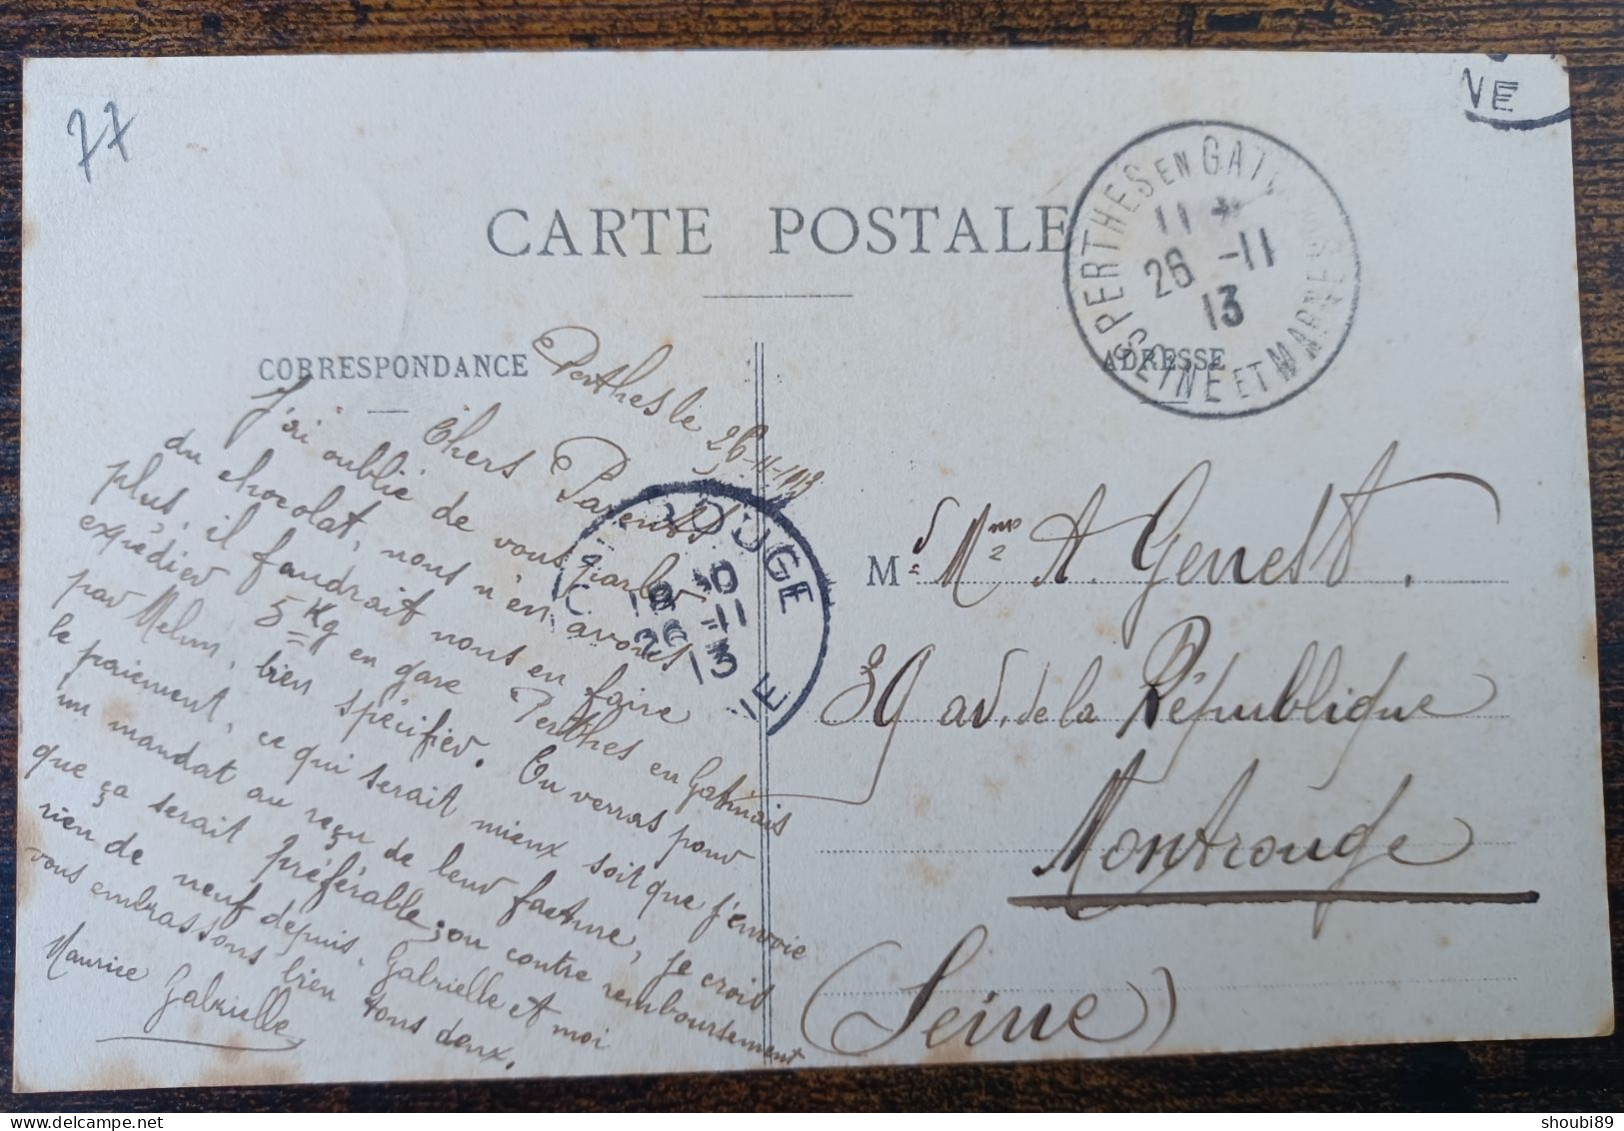 77
CARTE POSTALE
CORRESPONDANCE
ADRESSE
PERTHES EN GATI
SEINE ET MARNE
11 *
26 -11
13
NE
Perthes le 26-11-1913
Chers Parents
J'ai oublié de vous parler
du chocolat, nous n'en avons
plus, il faudrait nous en faire
expédier 5 Kg en gare Perthes en Gatinais
par Melun, bien spécifier. On verras pour
le paiement, ce qui serait mieux soit que j'envoie
un mandat au reçu de leur facture, je crois
que ça serait préférable, ou contre remboursement
rien de neuf depuis. Gabrielle et moi
vous embrassons bien tous deux.
Maurice Gabrielle
OUGE
26 -11
13
NE
M. Mme A. Genest.
39 av. de la République
Montrouge
(Seine)
shoubi89